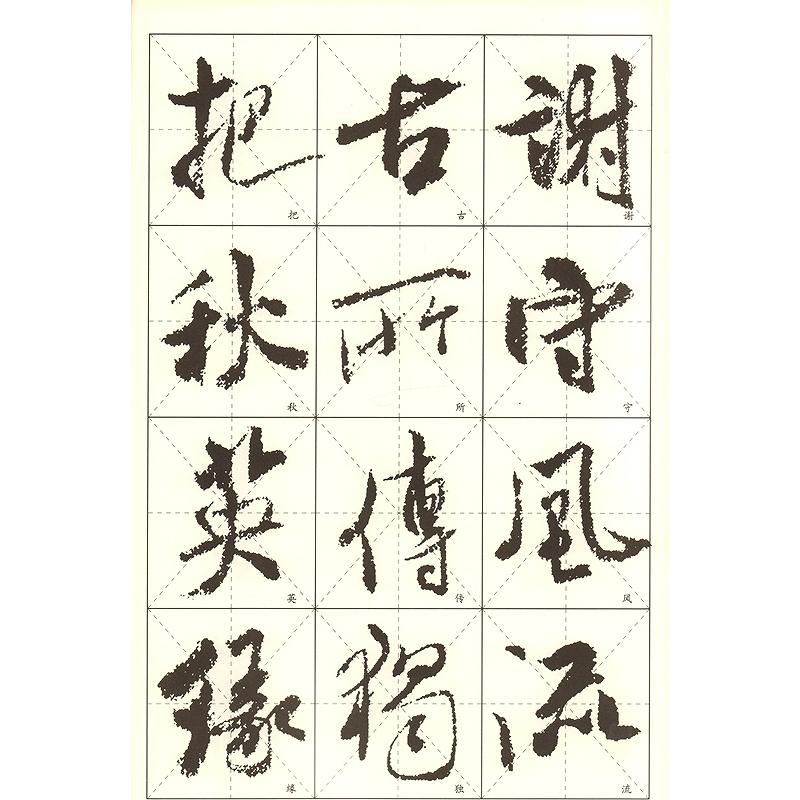 謝守風流
谢守风流
古所傳獨
古所传独
把秋英緣
把秋英缘